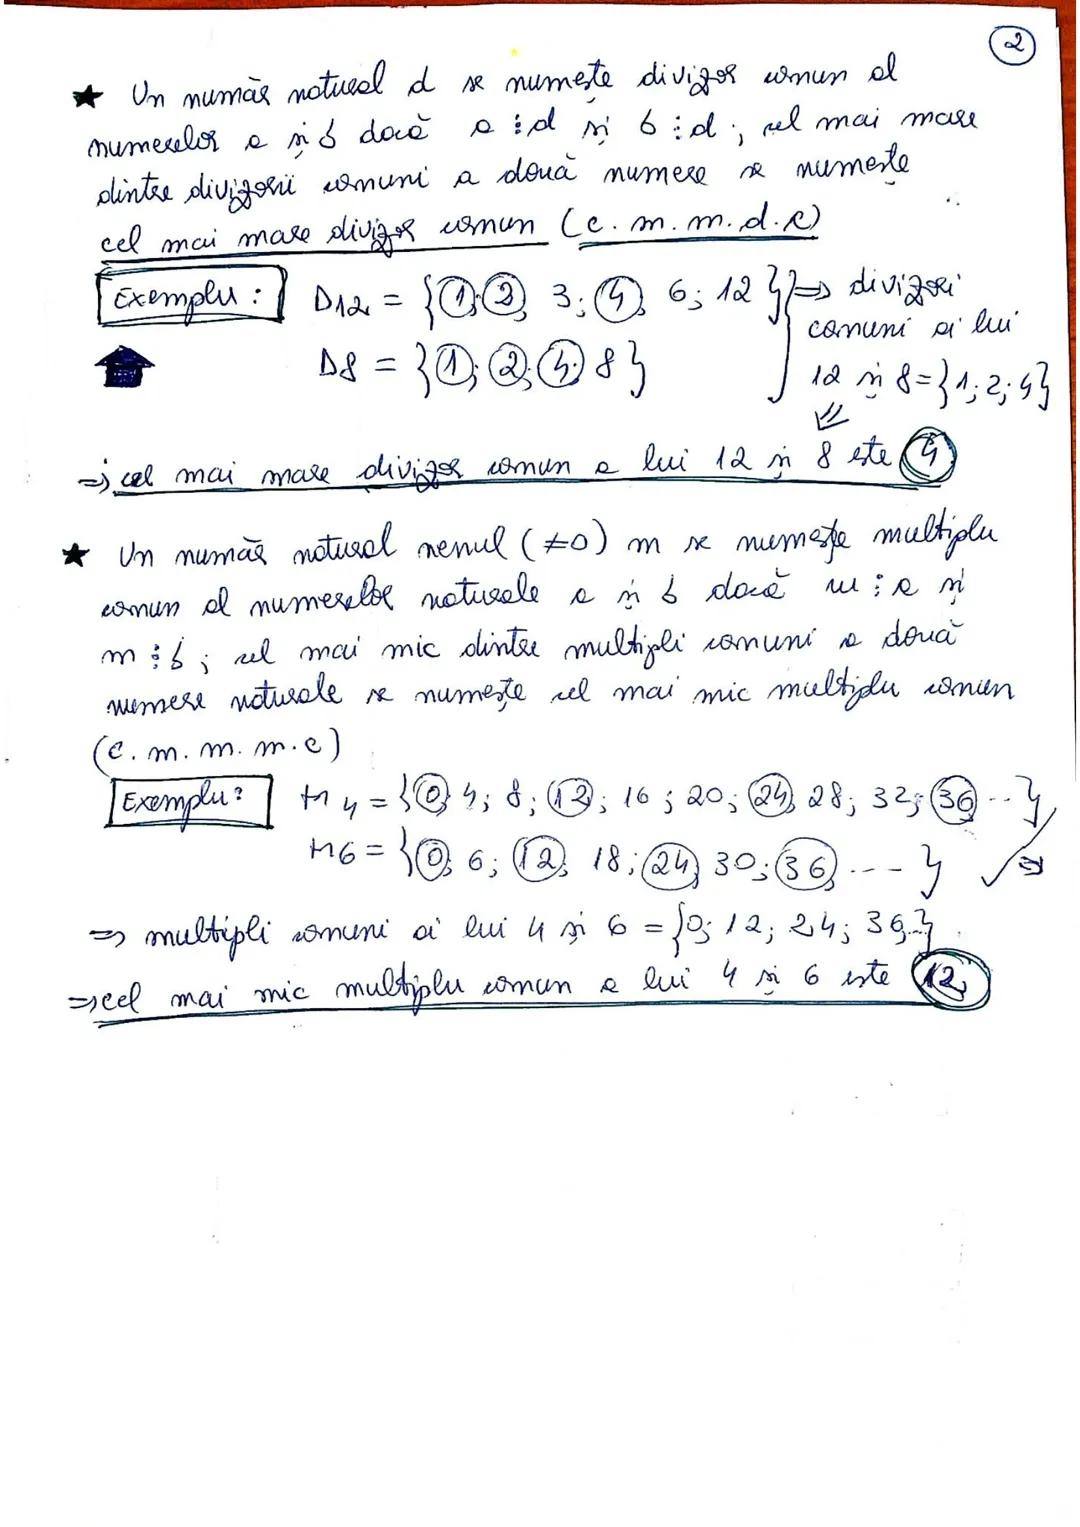 2
★ Un număr natural d se numește divizor comun al
numerelor a și b dacă a ⋮ d și b ⋮ d ; cel mai mare
dintre divizorii comuni a două numere se numește
cel mai mare divizor comun (c. m. m. d. c)
Exemplu : D12 = {1; 2; 3; 4; 6; 12} ⇒ divizori
comuni ai lui
D8 = {1; 2; 4; 8}
12 și 8 = {1; 2; 4}
⇒ cel mai mare divizor comun a lui 12 și 8 este 4
★ Un număr natural nenul (≠0) m se numește multiplu
comun al numerelor naturale a și b dacă m ⋮ a și
m ⋮ b ; cel mai mic dintre multipli comuni a două
numere naturale se numește cel mai mic multiplu comun
(c. m. m. m. c)
Exemplu: M4 = {0; 4; 8; 12; 16; 20; 24; 28; 32; 36 ...}
M6 = {0; 6; 12; 18; 24; 30; 36 ... } ⇒
⇒ multipli comuni ai lui 4 și 6 = {0; 12; 24; 36..}
⇒ cel mai mic multiplu comun a lui 4 și 6 este 12